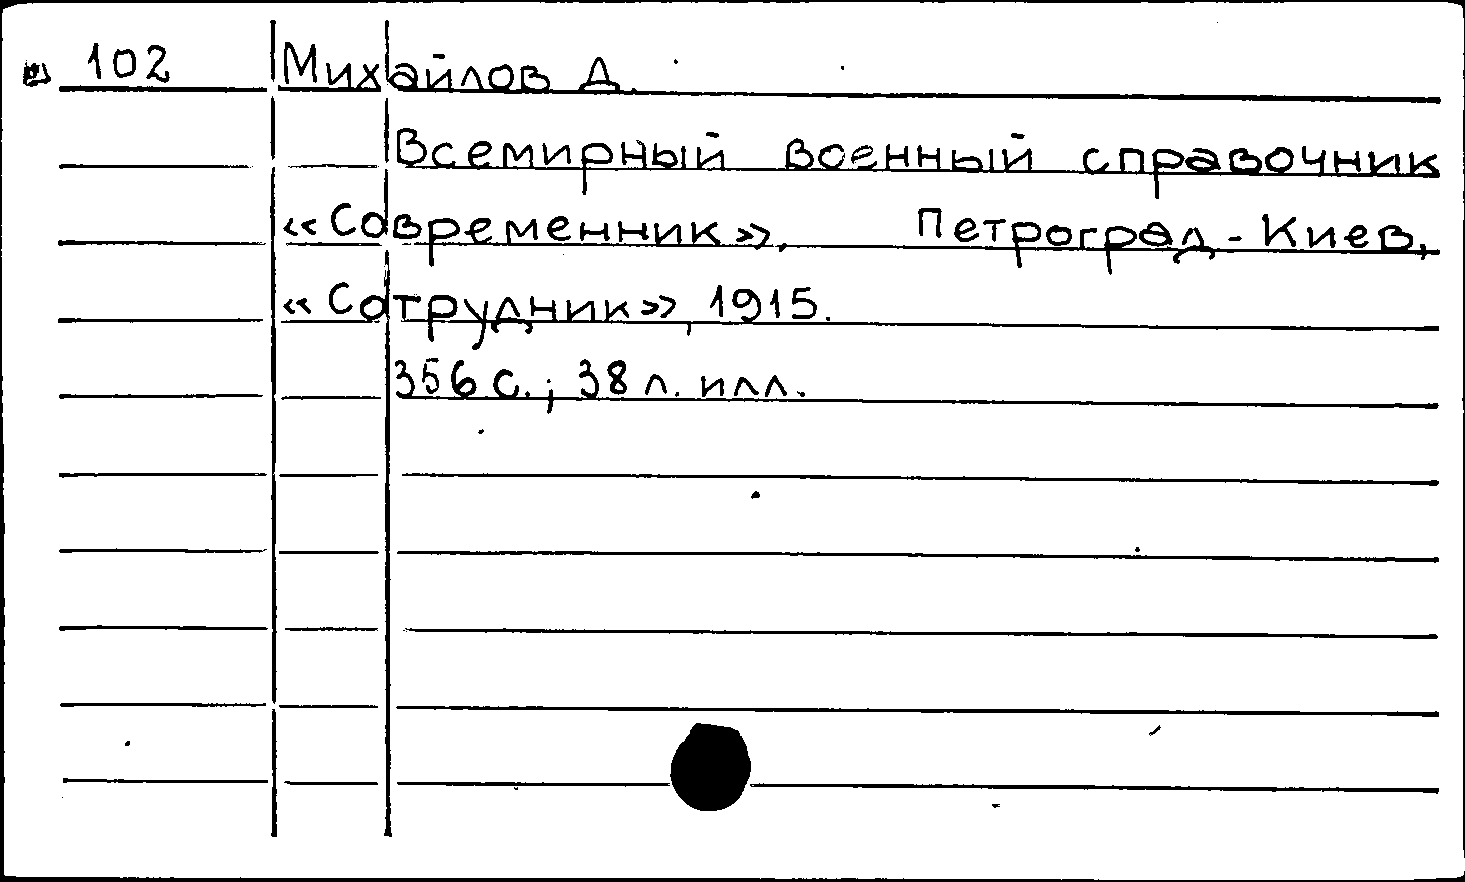 102 Михайлов Д.
Всемирный военный справочник
«Современник», Петроград - Киев,
«Сотрудник», 1915.
356 с.; 38 л. илл.